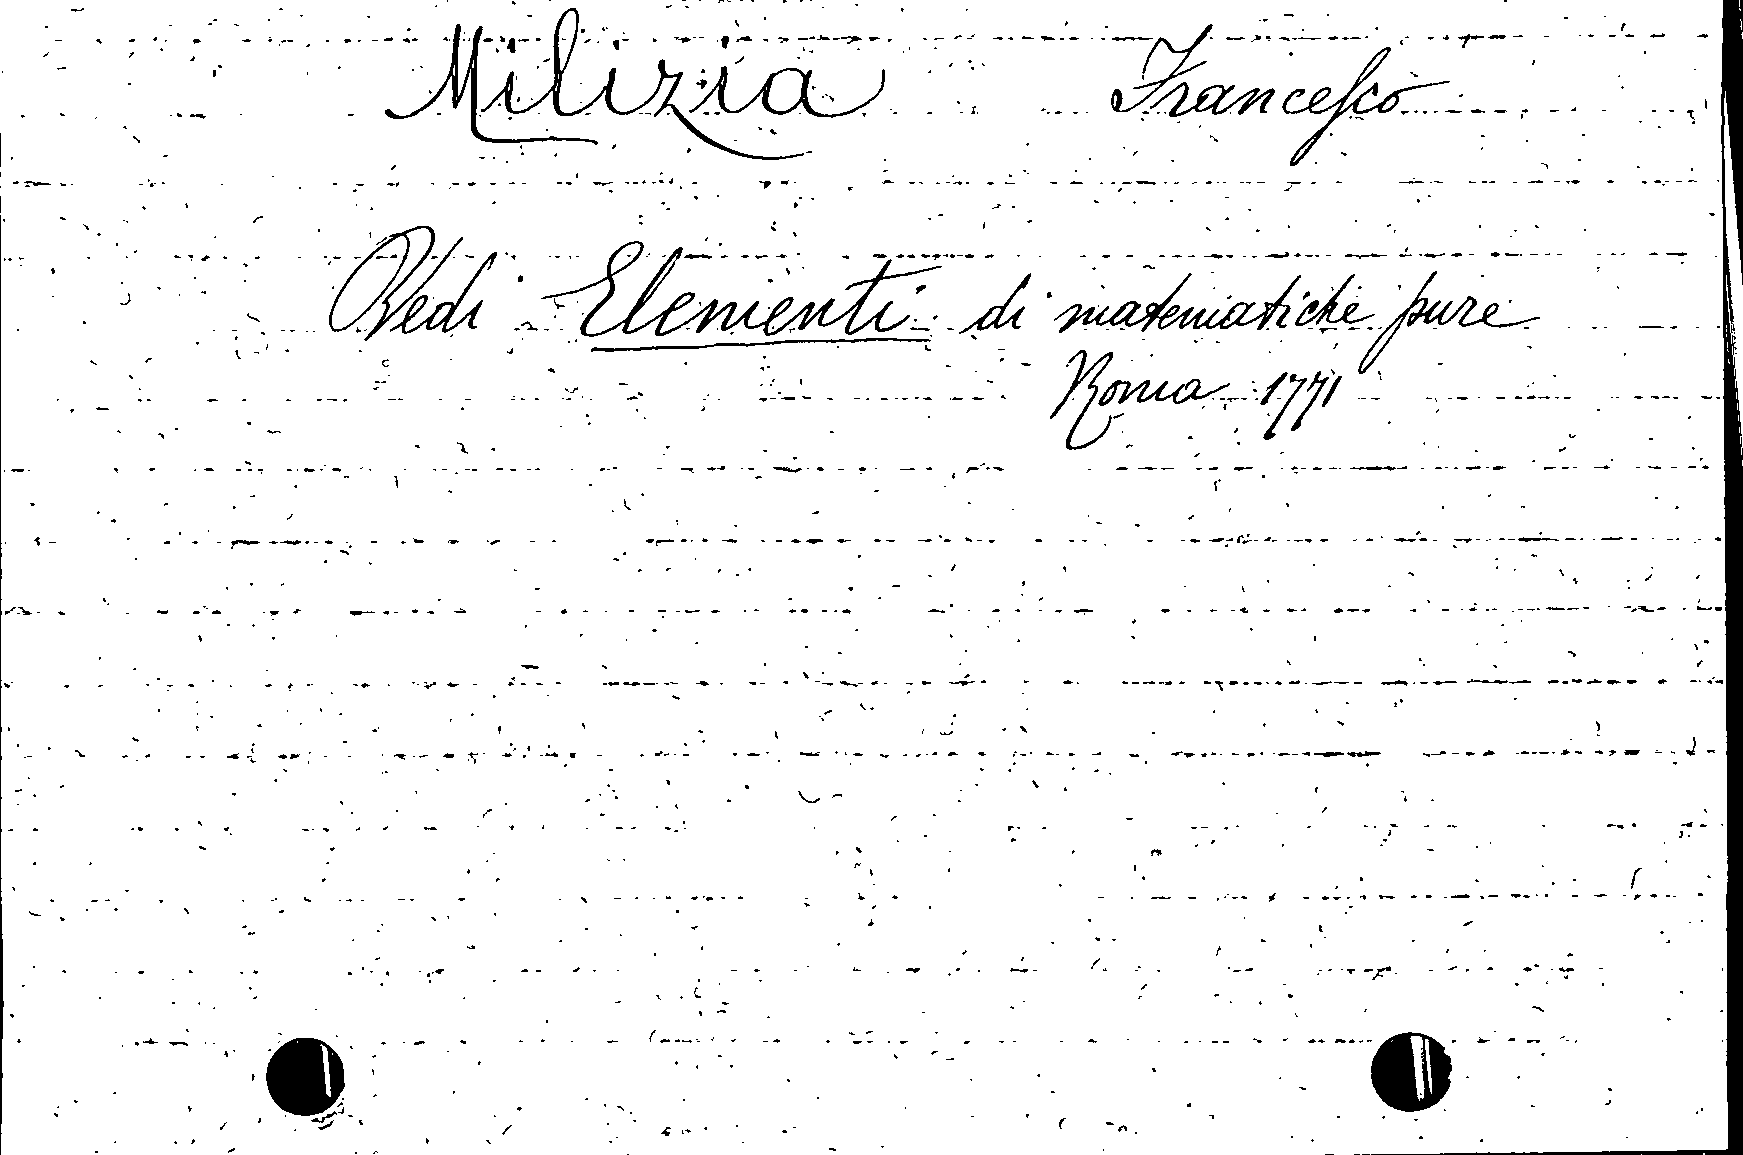 Milizia Francesco
Vedi Elementi di matematiche pure
Roma 1771